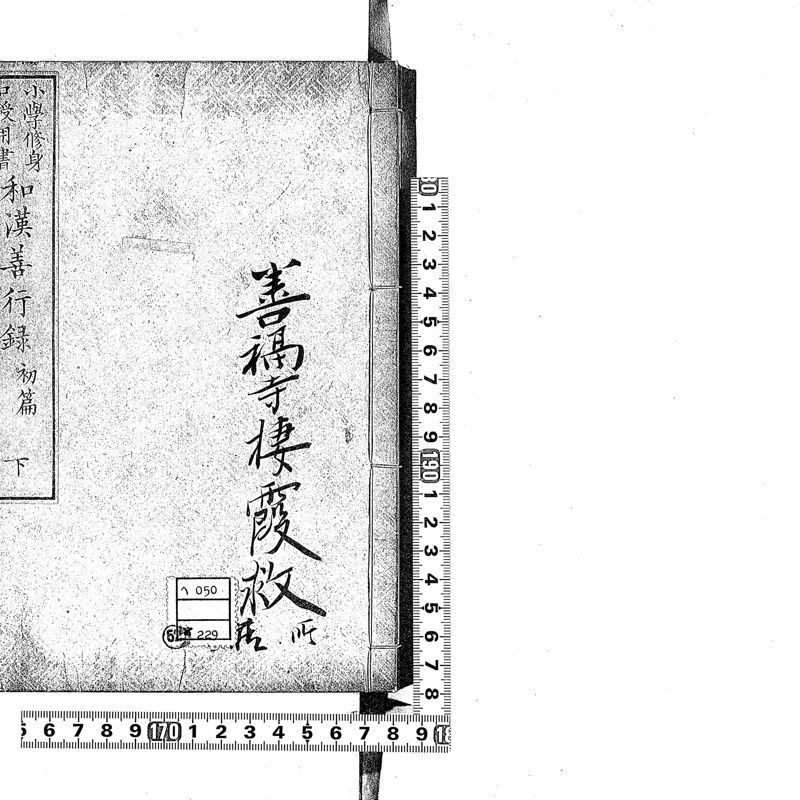 善福寺棲霞敬
小學修身
口授用書
和漢善行録 初篇 下
ヘ 050
229
80 1 2 3 4 5 6 7 8 9 190 1 2 3 4 5 6 7 8
5 6 7 8 9 170 1 2 3 4 5 6 7 8 9 18